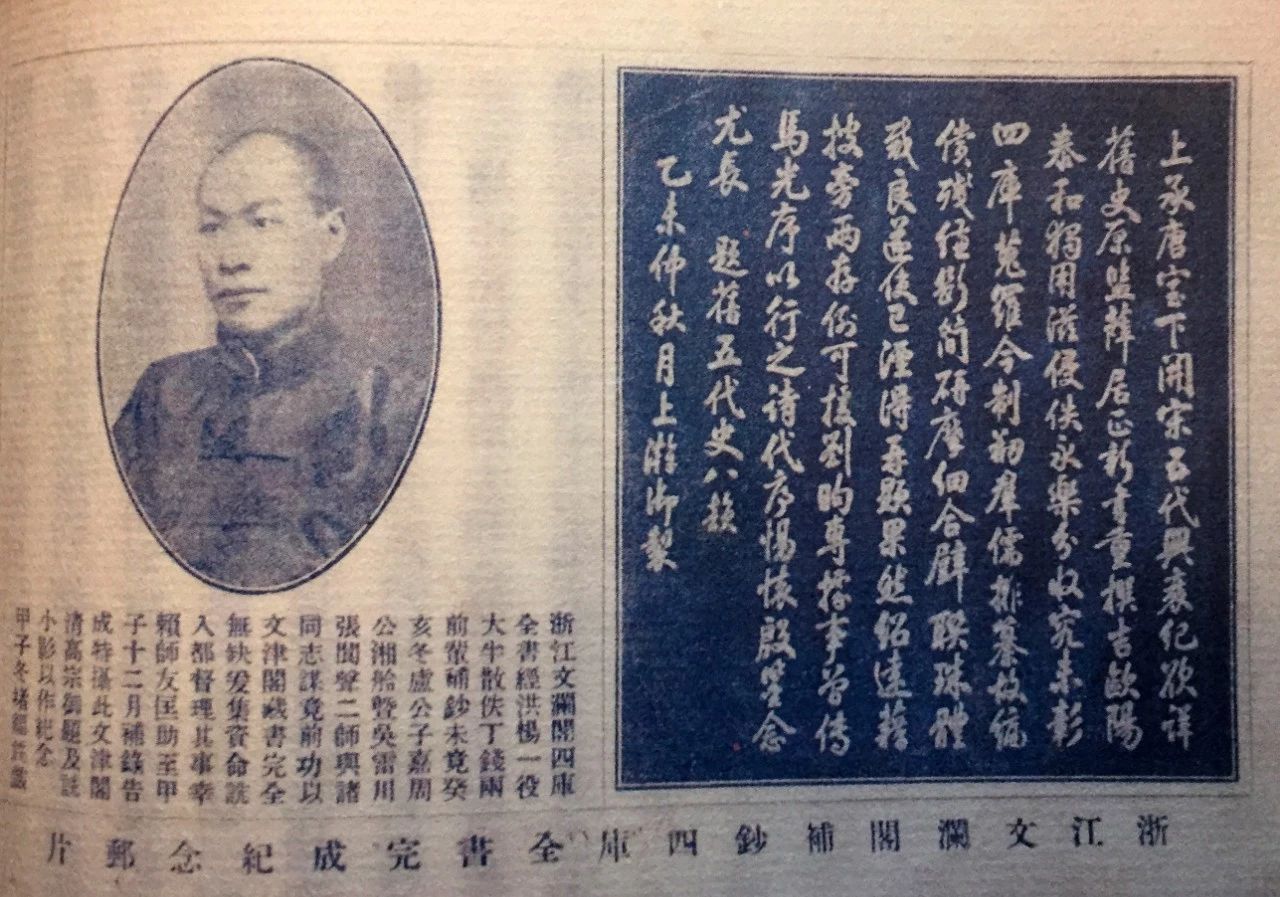 上承唐室下開宋五代興衰紀欲詳
舊史原監薛居正新書重撰吉歐陽
泰和獨用滋侵佚永樂分收究未彰
四庫蒐羅今制創羣儒排纂故編
償殘縑斷簡研摩細合璧聯珠體
裁良遂使已湮得再顯果然紹遠藉
搜旁兩存例可援劉昫專據事曾傳
馬光序以行之詩代序惕懷殷鑒念
尤長 題舊五代史八韻
乙未仲秋月上澣御製
浙江文瀾閣四庫
全書經洪楊一役
大半散佚丁錢兩
前輩補鈔未竟癸
亥冬盧公子嘉周
公湘舲暨吳雷川
張閬聲二師與諸
同志謀竟前功以
文津閣藏書完全
無缺爰集資命詵
入都督理其事幸
賴師友匡助至甲
子十二月補錄告
成特攝此文津閣
清高宗御題及詵
小影以作紀念
甲子冬堵福詵識
浙江文瀾閣補鈔四庫全書完成紀念郵片